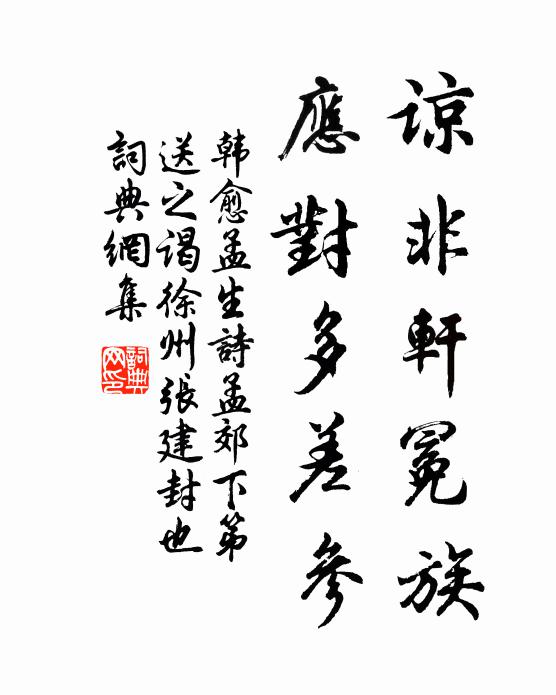 谅非軒冕族
應對多差參
韩愈孟生詩孟郊下第
送之谒徐州張建封也
詞典網集
詞典网印